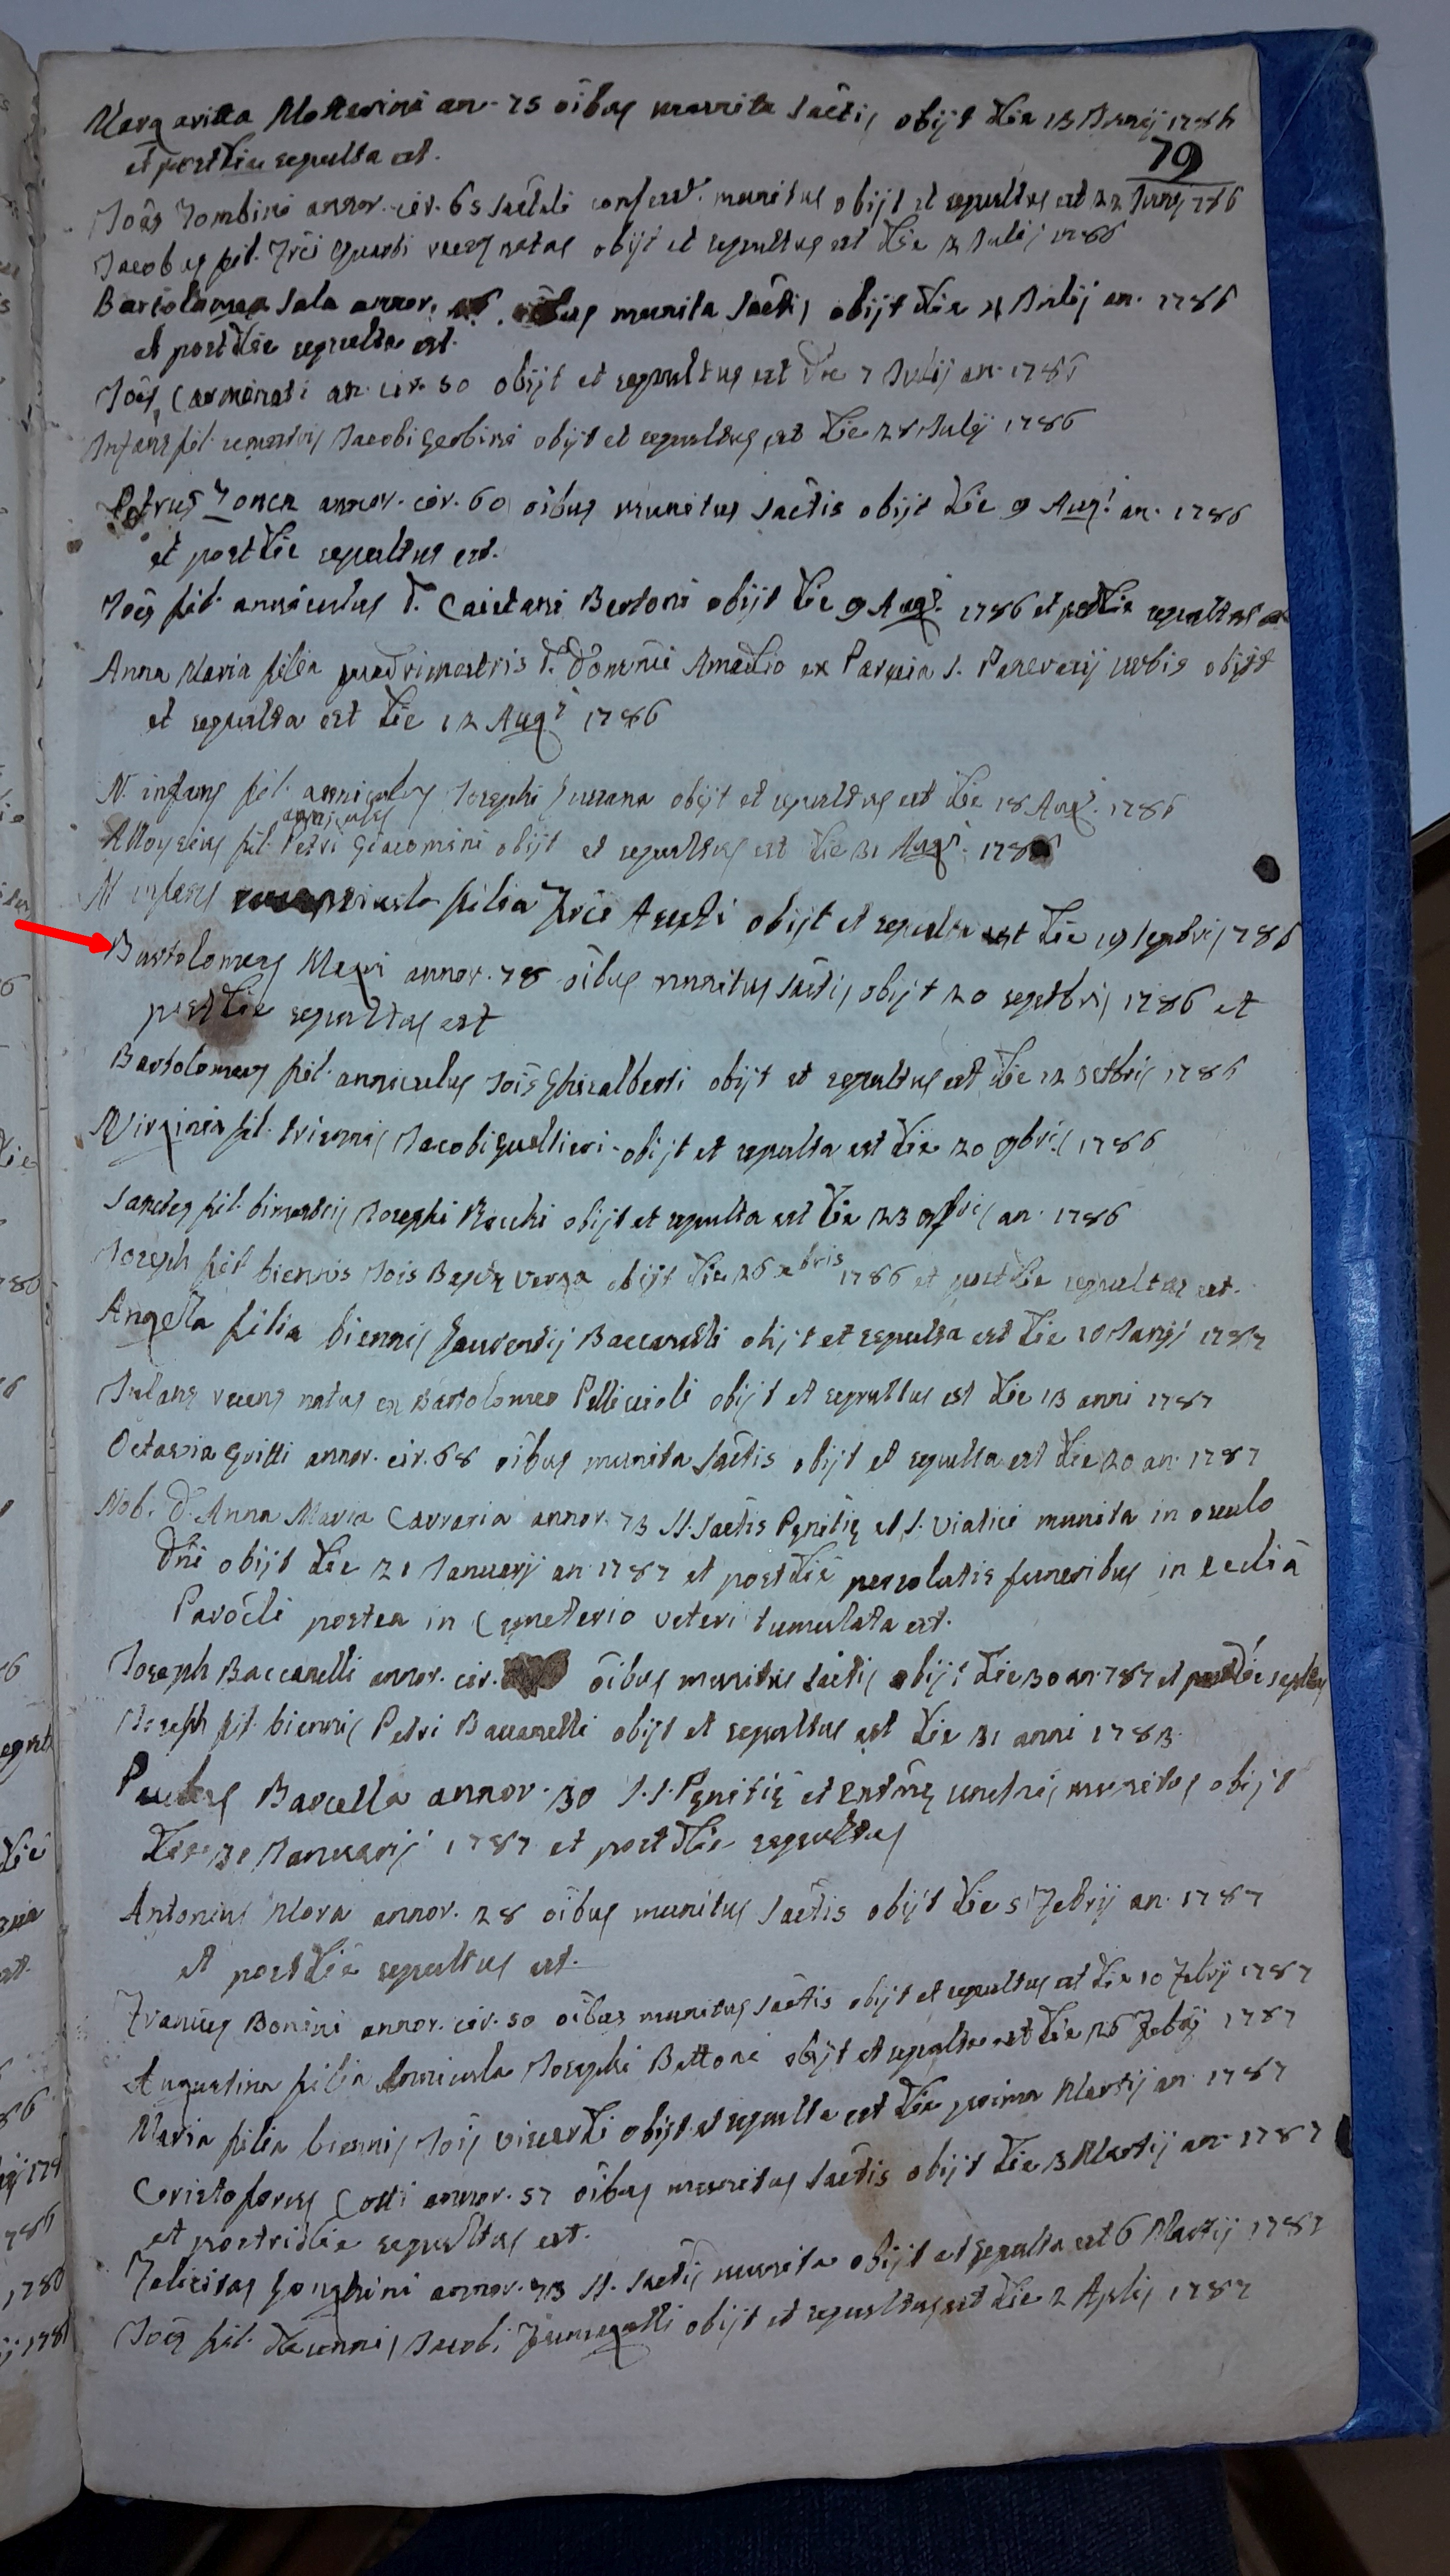 Margarita Motterini an. 75 oibus munita sactis obijt die 13 Junij 1786
79
et postdie sepulta est.
Joes Tombini annor. cir. 65 sactali confess. munitus obijt et sepultus est 22 Junij 786
Jacobus fil. Frci recens natus obijt et sepultus est die 2 Julij 1786
Bartolamea Sala annor. oibus munita sactis obijt die 4 Julij an. 1786
et postdie sepulta est.
Joes Carminati an. cir. 50 obijt et sepultus est die 7 Julij an. 1786
Infans fil. Jacobi Gerbini obijt et sepultus est die 28 Julij 1786
Petrus Zonca annor. cir. 60 oibus munitus sactis obijt die 9 Augi an. 1786
et postdie sepultus est.
Joes fil. anniculus D. Caietani Bertoni obijt die 9 Augi 1786 et postdie sepultus est
Anna Maria filia quadrimestris D. Domnici Amadio ex Parocia S. Panevraij urbis obijt
et sepulta est die 12 Augi 1786
N. infans fil. anniculus Josephi obijt et sepultus est die 18 Augi 1786
anniculus
Alloysius fil. Petri Giacomini obijt et sepultus est die 31 Augi 1786
N infans filia Frci obijt et sepulta est die 19 Septbris 1786
Bartolomeus annor. 78 oibus munitus sactis obijt 20 septbris 1786 et
postdie sepultus est
Bartolomeus fil. anniculus Jois Ghisalberti obijt et sepultus est die 12 Septbris 1786
Virginia fil. triennis Jacobi Gualtieri obijt et sepulta est die 20 9bris 1786
fil. bimestris Josephi Rochi obijt et sepulta est die 23 9bris an. 1786
Joseph fil. biennis Jois Baptę Verga obijt die 26 xbris 1786 et postdie sepultus est.
Angella filia biennis Gaudentij Baccanelli obijt et sepulta est die 10 1787
Infans recens natus ex Bartolomeo Pelliccioli obijt et sepultus est die 13 anni 1787
Octavia Gritti annor. cir. 68 oibus munita sactis obijt et sepulta est die 20 an. 1787
Nob. D. Anna Maria Carraria annor. 73 SS. sactis Pęnitię et S. Viatici munita in osculo
Dni obijt die 21 Januarij an 1787 et postdie persolutis funeribus in Ecclia
Parocli postea in Cęmeterio veteri tumulata est.
Joseph Baccanelli annor. cir. oibus munitus sactis obijt die 30 an. 787 et postdie sepultus
Joseph fil. biennis Petri Baccanelli obijt et sepultus est die 31 anni 1783
Barcella annor. 30 S.S. Pęnitię et Extmę unctnis munitus obijt
die 31 Januarij 1787 et postdie sepultus
Antonius Mora annor. 28 oibus munitus sactis obijt die 5 Febrij an. 1787
et postdie sepultus est.
Francus Bonini annor. cir. 50 oibus munitus sactis obijt et sepultus est die 10 Febrij 1787
Augustina filia annicula Josephi Bettoni obijt et sepulta est die 26 Febrij 1787
Maria filia biennis Jois Vicardi obijt et sepulta est die prima Martij an. 1787
Cristoforus Cotti annor. 57 oibus munitus sactis obijt die 3 Martij an. 1787
et postridie sepultus est.
Felicitas Gonghini annor. 73 SS. sactis munita obijt et sepulta est 6 Martij 1787
Joes fil. Jacobi Fumagalli obijt et sepultus est die 2 Aplis 1787